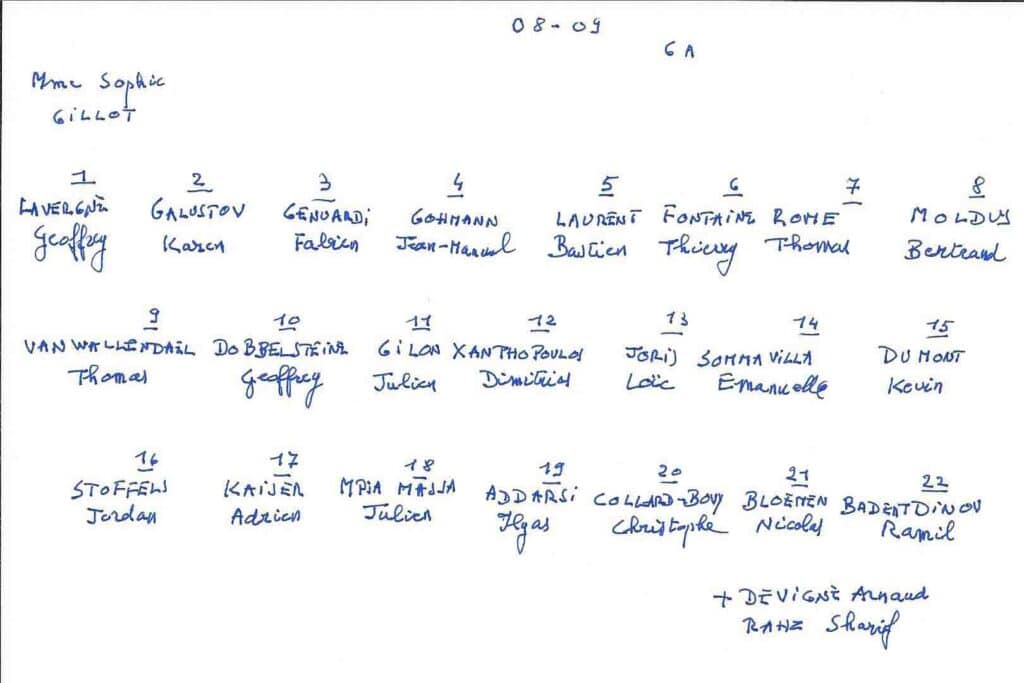 08-09
6A
Mme Sophie
GILLOT
1 2 3 4 5 6 7 8
LAVERGNE GALUSTOV GENUARDI GOHMANN LAURENT FONTAINE ROME MOLDUS
Geoffrey Karen Fabien Jean-Manuel Bastien Thierry Thomas Bertrand
9 10 11 12 13 14 15
VAN WALLENDAEL DOBBELSTEINE GILON XANTHOPOULOS JORIS SOMMAVILLA DUMONT
Thomas Geoffrey Julien Dimitrios Loïc Emanuelle Kevin
16 17 18 19 20 21 22
STOFFELS KAISER MPIA MASSA ADDARSI COLLARD-BOVY BLOEMEN BADERTDINOV
Jordan Adrien Julien Ilyas Christophe Nicolas Ramil
+ DEVIGNE Arnaud
RANZ Sharif